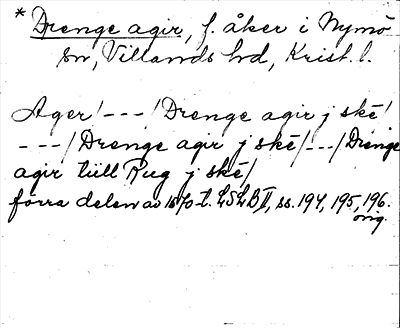 * Drenge agir, f. åker i Nymö
sn, Villands hd, Krist. l.
Ager / - - - / Drenge agir j skē /
- - - / Drenge agir j skē / - - - / Drenge
agir tiill Rug j skē /
förra delen av 1570-t. LSLB II, ss. 194, 195, 196.
orig.